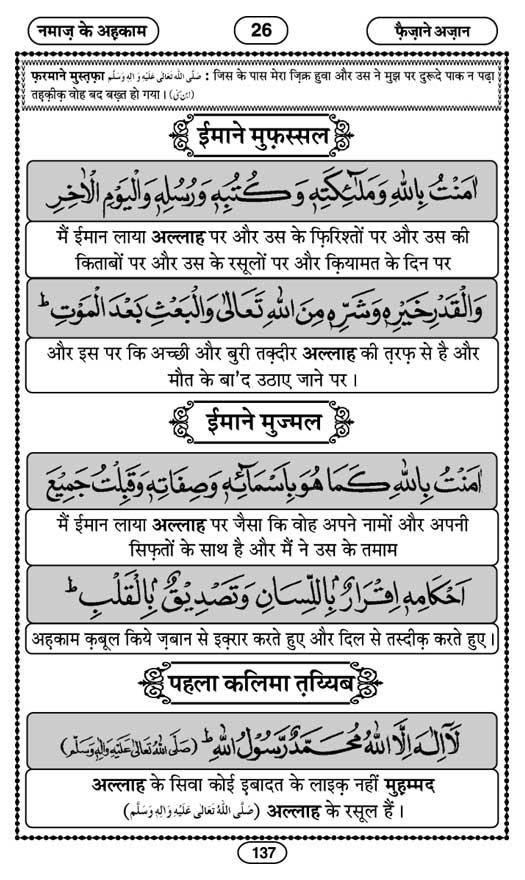 नमाज़ के अहकाम
26
फ़ैज़ाने अज़ान
फ़रमाने मुस्तफ़ा صَلَّى اللهُ تَعَالٰى عَلَيْهِ وَاٰلِهٖ وَسَلَّم : जिस के पास मेरा ज़िक्र हुवा और उस ने मुझ पर दुरूदे पाक न पढ़ा
तह़क़ीक़ वोह बद बख़्त हो गया। (ابن سنی)
ईमाने मुफ़स्सल
اٰمَنْتُ بِاللهِ وَمَلٰٓئِكَتِهٖ وَكُتُبِهٖ وَرُسُلِهٖ وَالْيَوْمِ الْاٰخِرِ
मैं ईमान लाया अल्लाह पर और उस के फ़िरिश्तों पर और उस की
किताबों पर और उस के रसूलों पर और क़ियामत के दिन पर
وَالْقَدْرِ خَيْرِهٖ وَشَرِّهٖ مِنَ اللهِ تَعَالٰى وَالْبَعْثِ بَعْدَ الْمَوْتِ ؕ
और इस पर कि अच्छी और बुरी तक़्दीर अल्लाह की त़रफ़ से है और
मौत के बा'द उठाए जाने पर।
ईमाने मुज्मल
اٰمَنْتُ بِاللهِ كَمَا هُوَ بِاَسْمَآئِهٖ وَصِفَاتِهٖ وَقَبِلْتُ جَمِيْعَ
मैं ईमान लाया अल्लाह पर जैसा कि वोह अपने नामों और अपनी
सिफ़तों के साथ है और मैं ने उस के तमाम
اَحْكَامِهٖ اِقْرَارٌۢ بِاللِّسَانِ وَتَصْدِيْقٌۢ بِالْقَلْبِ ؕ
अह़काम क़बूल किये ज़बान से इक़्रार करते हुए और दिल से तस्दीक़ करते हुए।
पहला कलिमा त़य्यिब
لَآ اِلٰهَ اِلَّا اللهُ مُحَمَّدٌ رَّسُوْلُ اللهِ ؕ (صَلَّى اللهُ تَعَالٰى عَلَيْهِ وَاٰلِهٖ وَسَلَّم)
अल्लाह के सिवा कोई इबादत के लाइक़ नहीं मुह़म्मद
(صَلَّى اللهُ تَعَالٰى عَلَيْهِ وَاٰلِهٖ وَسَلَّم) अल्लाह के रसूल हैं।
137